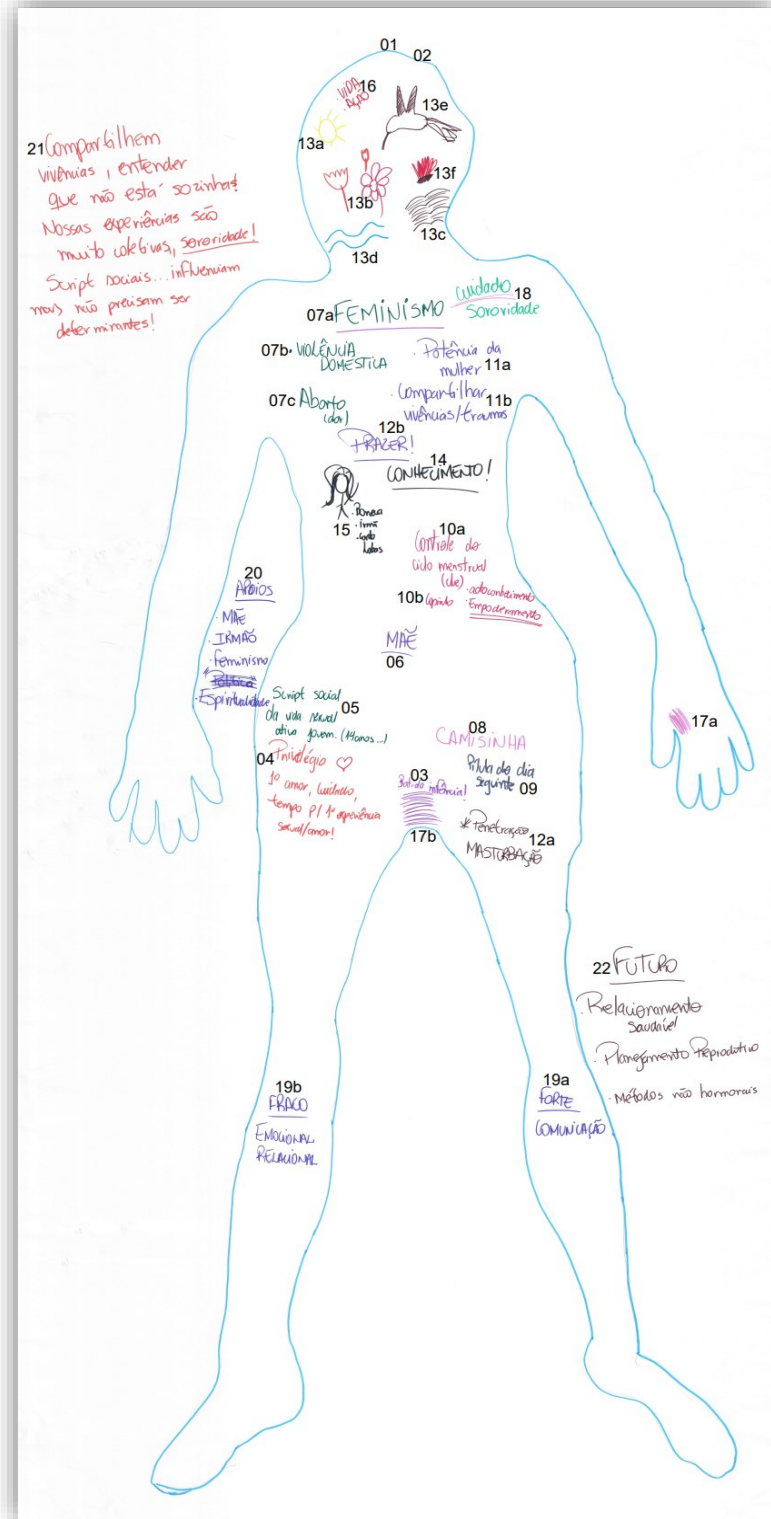 01
02
16
VIDA
AÇÃO
13e
13a
13f
13b
13c
13d
21 Compartilhem
vivências, entender
que não está sozinha!
Nossas experiências são
muito coletivas, sororidade!
Script sociais... influenciam
mais não precisam ser
determinantes!
07a FEMINISMO
cuidado 18
sororidade
07b • VIOLÊNCIA
DOMESTICA
• Potência da
mulher 11a
07c Aborto
(dor)
• Compartilhar 11b
vivências/traumas
12b
PRAZER!
14
CONHECIMENTO!
15
• Boneca
• irmã
10a
Controle do
ciclo menstrual
10b
• autoconhecimento
Empoderamento
20
APOIOS
• MÃE
• IRMÃO
• feminismo
• Política
• Espiritualidade
MÃE
06
Script social 05
da vida sexual
ativa jovem. (14 anos...)
04 Privilégio ♡
1º amor, cuidado,
tempo p/ 1ª experiência
sexual/amor!
08
CAMISINHA
Pílula do dia
seguinte 09
03
infância!
17b
* Penetração 12a
MASTURBAÇÃO
17a
22 FUTURO
• Relacionamento
saudável
• Planejamento Reprodutivo
• Métodos não hormonais
19b
FRACO
EMOCIONAL
RELACIONAL
19a
FORTE
COMUNICAÇÃO